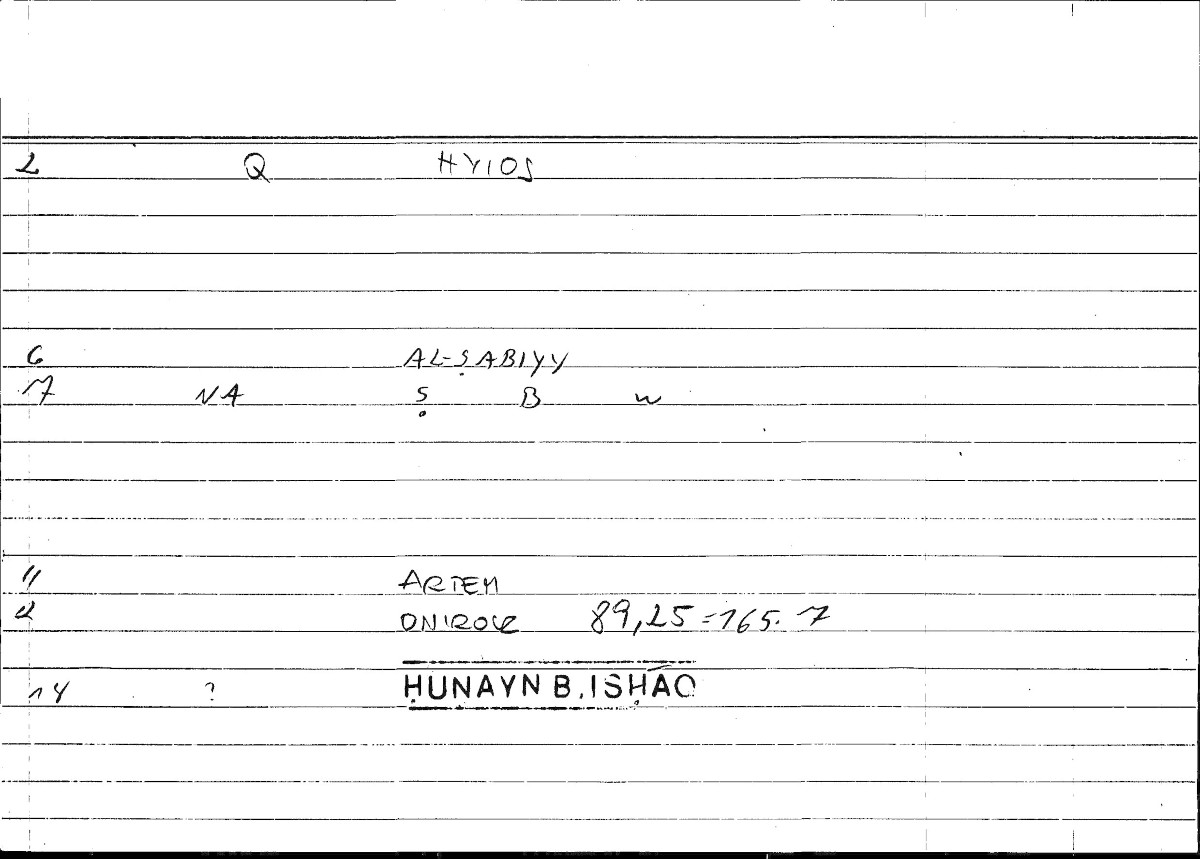 2 Q HYIOS
6 AL-ṢABIYY
7 NA Ṣ B W
11 ARTEM
12 ONIROCR 89,25 = 165.7
14 ? ḤUNAYN B. ISḤĀQ